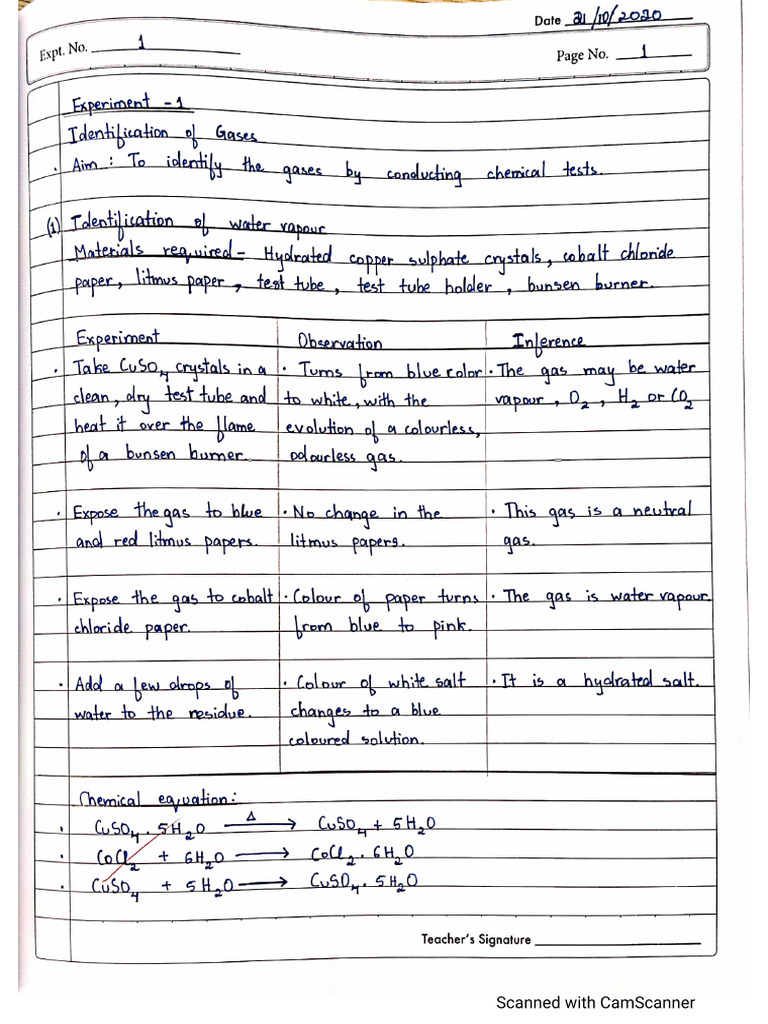 Date 21/10/2020
Expt. No. 1
Page No. 1
Experiment - 1
Identification of Gases
• Aim : To identify the gases by conducting chemical tests.
(1) Identification of water vapour
Materials required - Hydrated copper sulphate crystals, cobalt chloride
paper, litmus paper, test tube, test tube holder, bunsen burner.
Experiment
• Take CuSO₄ crystals in a
clean, dry test tube and
heat it over the flame
of a bunsen burner.
Observation
• Turns from blue color
to white, with the
evolution of a colourless,
odourless gas.
Inference
• The gas may be water
vapour, O₂, H₂ or CO₂
• Expose the gas to blue
and red litmus papers.
• No change in the
litmus papers.
• This gas is a neutral
gas.
• Expose the gas to cobalt
chloride paper.
• Colour of paper turns
from blue to pink.
• The gas is water vapour.
• Add a few drops of
water to the residue.
• Colour of white salt
changes to a blue
coloured solution.
• It is a hydrated salt.
Chemical equation:
• CuSO₄ . 5H₂O —Δ→ CuSO₄ + 5H₂O
• CoCl₂ + 6H₂O → CoCl₂ . 6H₂O
• CuSO₄ + 5H₂O → CuSO₄ . 5H₂O
Teacher's Signature
Scanned with CamScanner